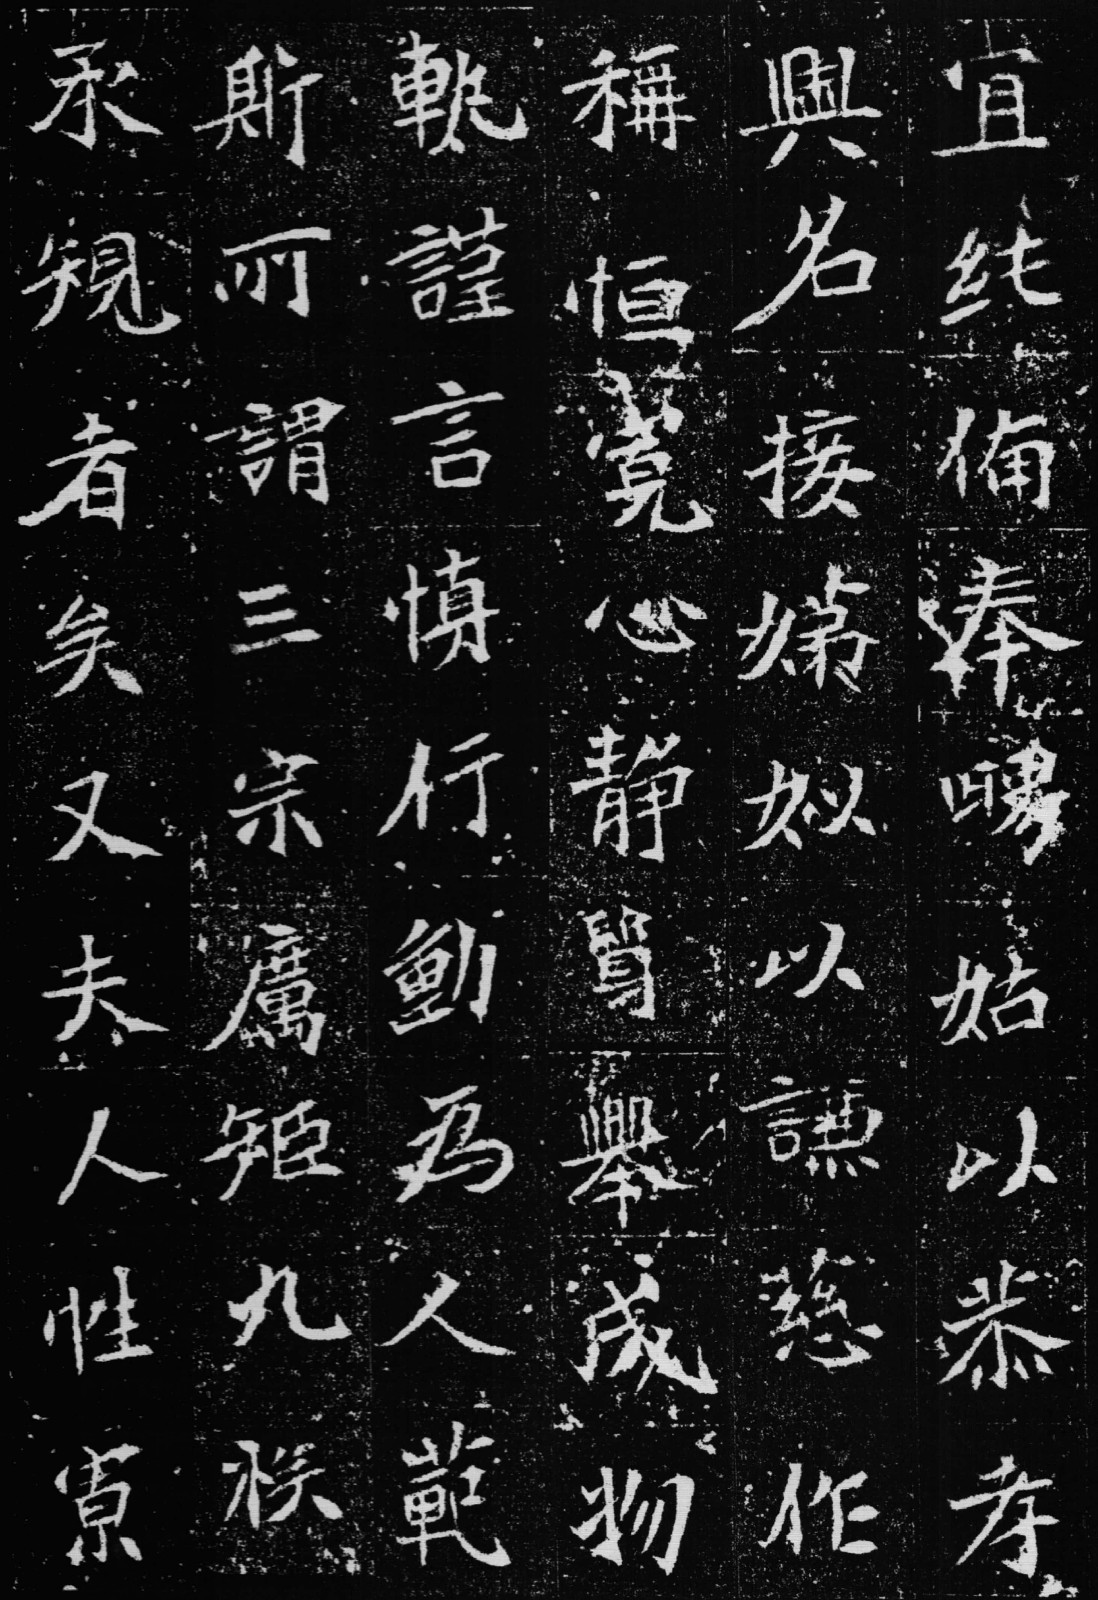 宜純備奉姑以恭孝
興名接娣姒以謙慈作
稱恒寬心靜質舉成物
軌謹言慎行動為人範
斯所謂三宗厲矩九族
承規者矣又夫人性寡